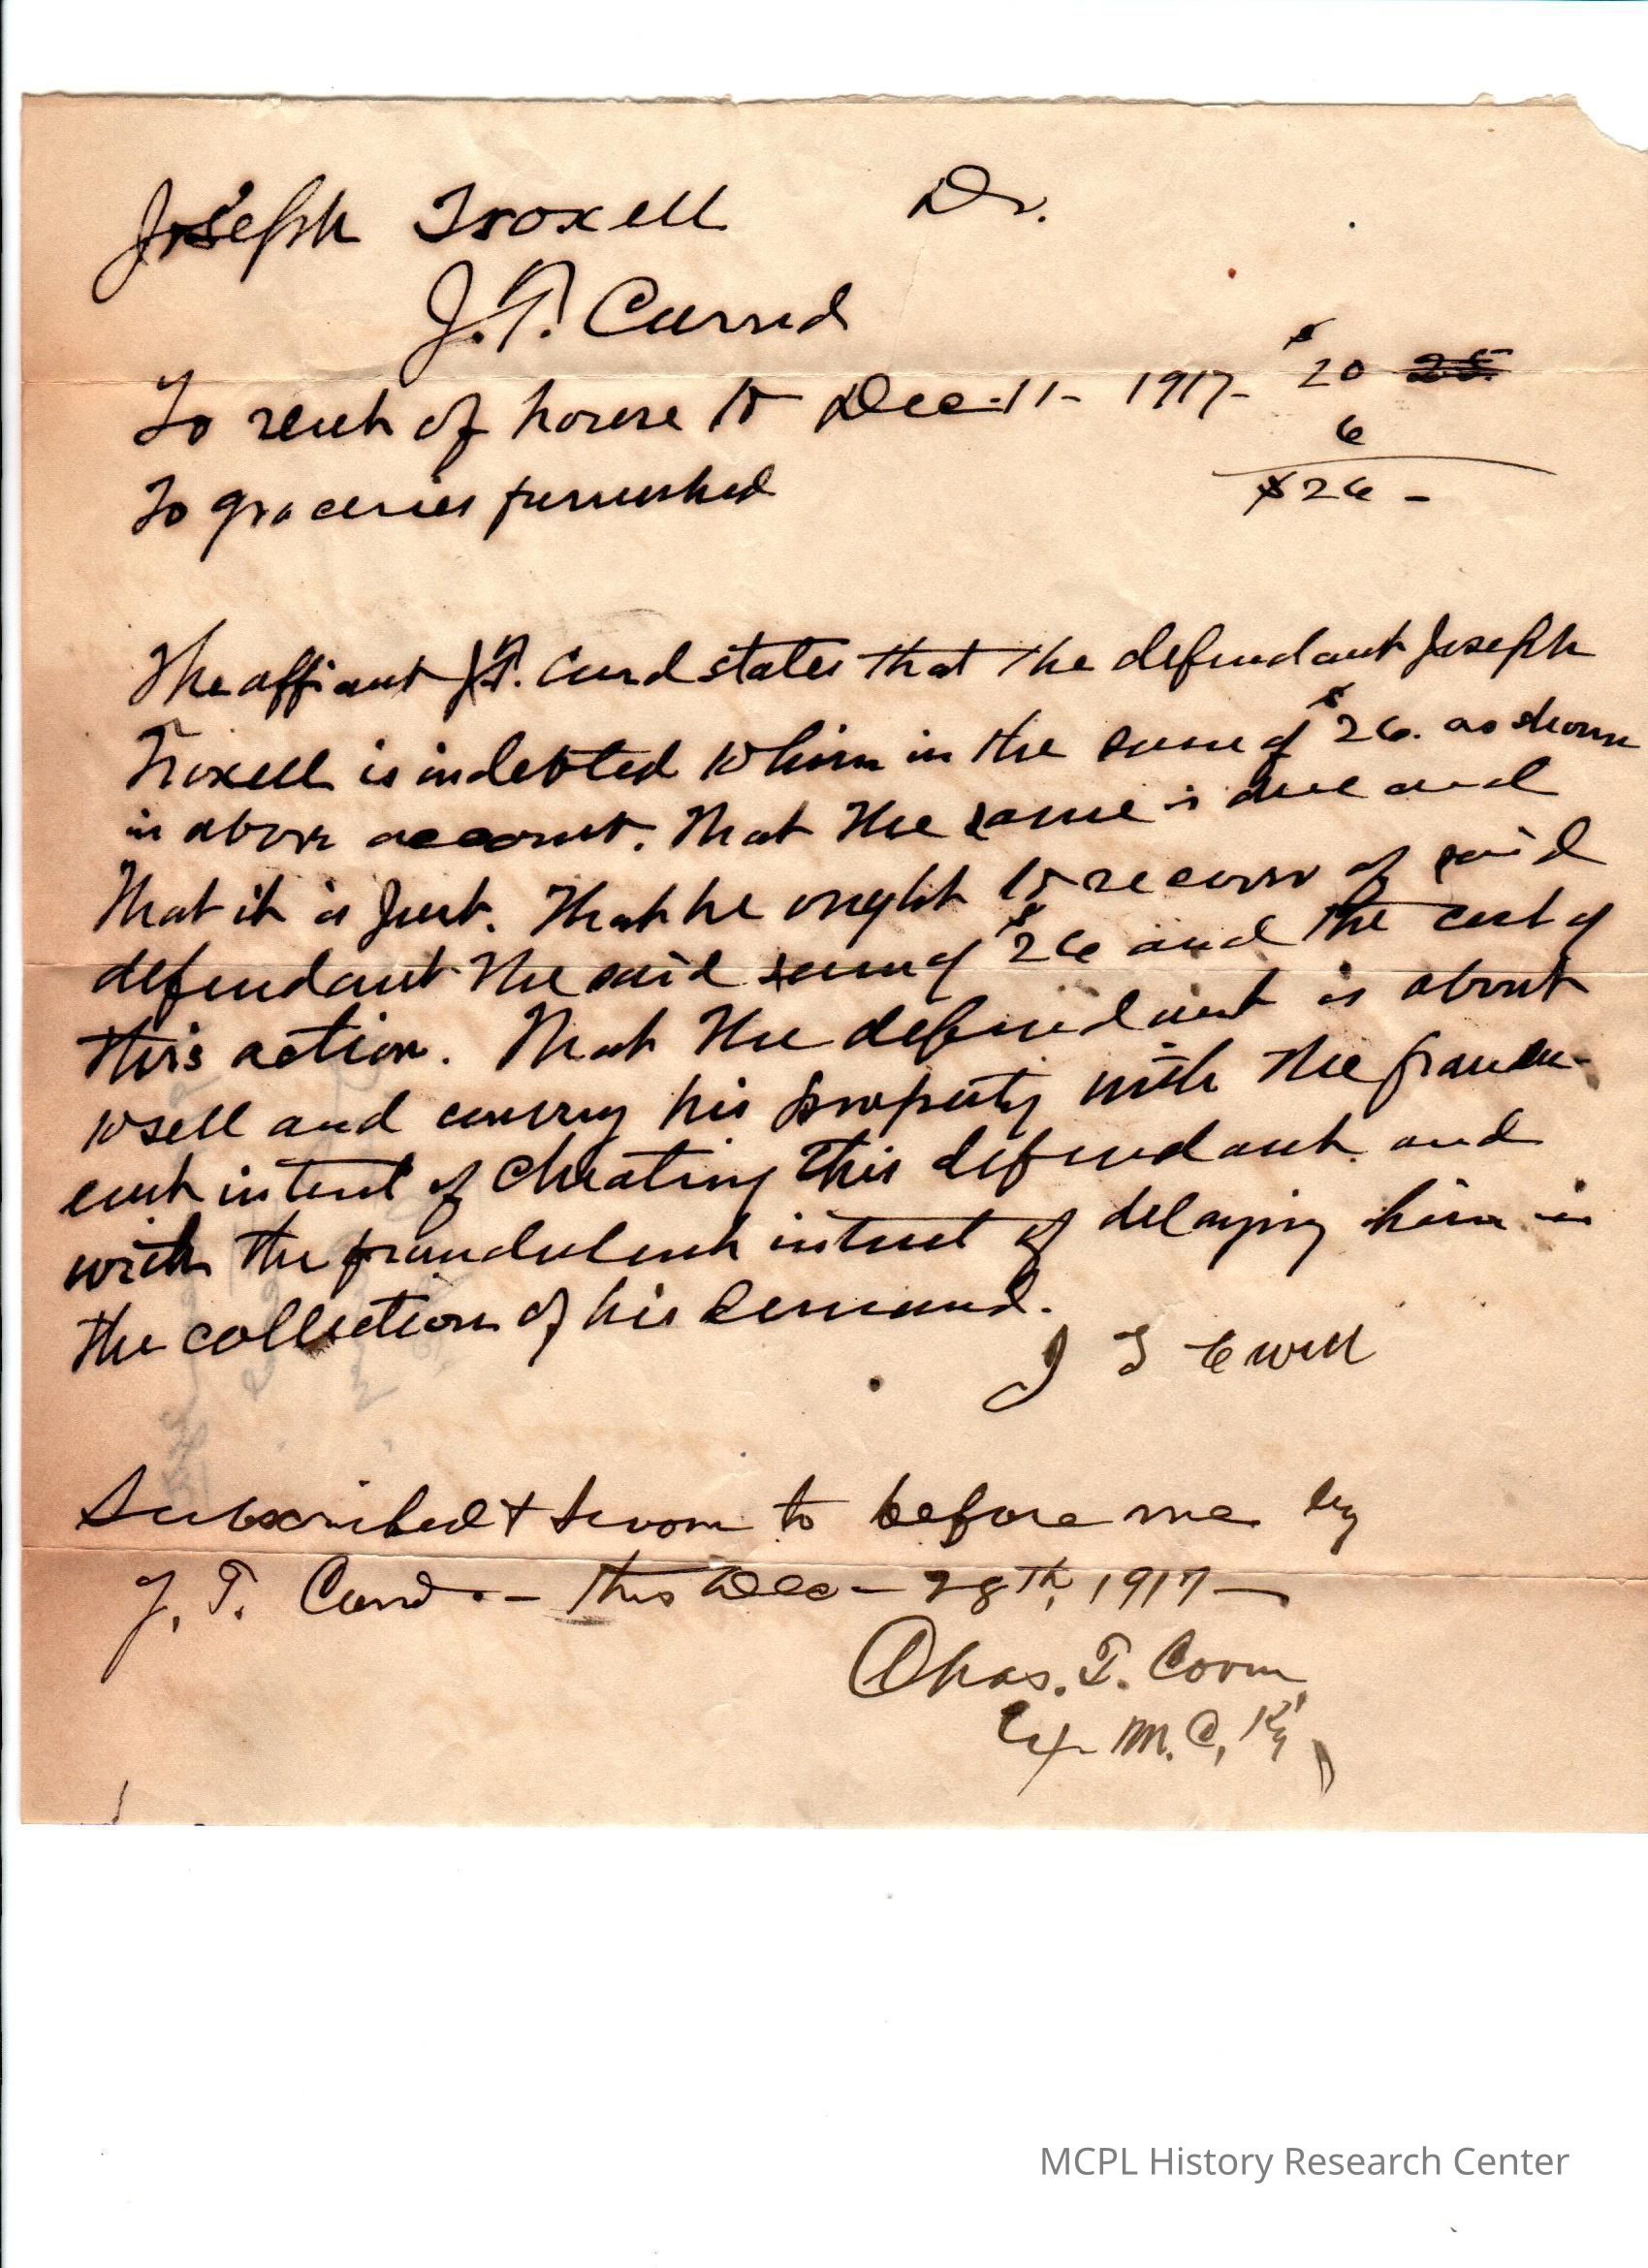 Joseph Troxell Dr.
J.T. Curd
To rent of house to Dec. 11 - 1917 - $20 25.
6
To groceries furnished
$26 -
The affiant J.T. Curd states that the defendant Joseph
Troxell is indebted to him in the sum of $26. as shown
in above account. That the same is due and
that it is Just. That he ought to recover of said
defendant the said sum of $26 and the cost of
this action. That the defendant is about
to sell and convey his property with the fraudu-
lent intent of cheating this defendant and
with the fraudulent intent of delaying him in
the collection of his demand.
J T
Subscribed + sworn to before me by
J. T. Curd. - this Dec - 28th, 1917 -
Chas. T.
M. C, Ky
MCPL History Research Center